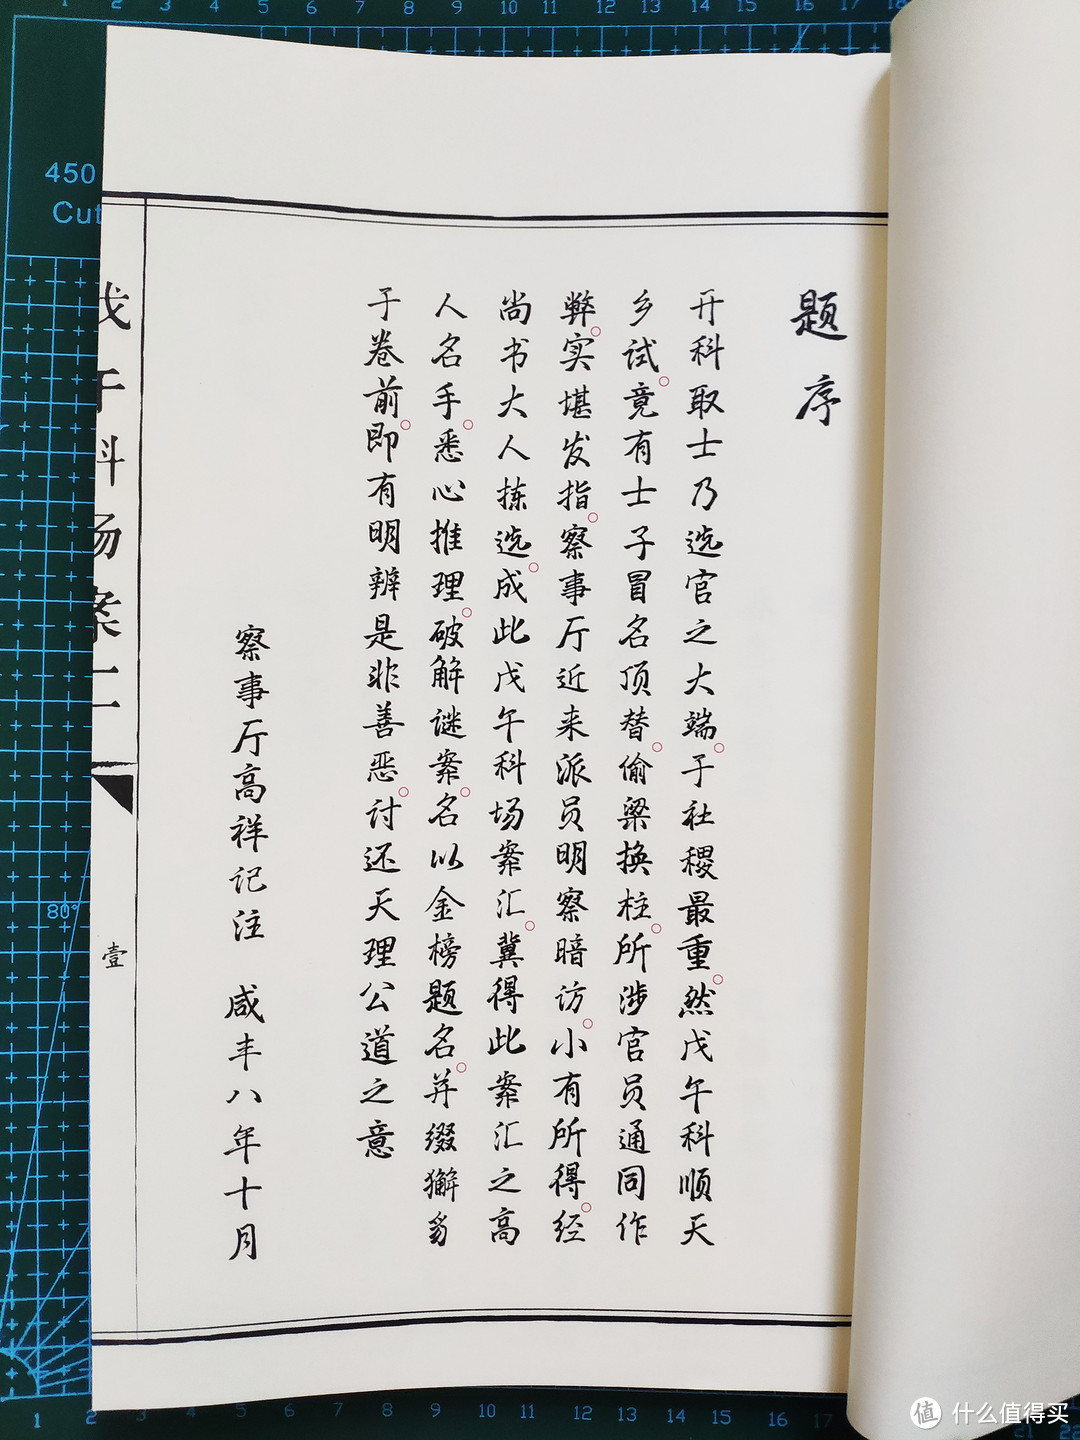 题序
开科取士乃选官之大端。于社稷最重。然戊午科顺天
乡试。竟有士子冒名顶替。偷梁换柱。所涉官员通同作
弊。实堪发指。察事厅近来派员明察暗访。小有所得。经
尚书大人拣选。成此戊午科场案汇。冀得此案汇之高
人名手。悉心推理。破解谜案。名以金榜题名。并缀獬豸
于卷前。即有明辨是非善恶。讨还天理公道之意
察事厅高祥记注 咸丰八年十月
戊午科场案二
壹
450
Cut
80°
1 2 3 4 5 6 7 8 9 10 11 12 13 14 15 16 17
值 什么值得买